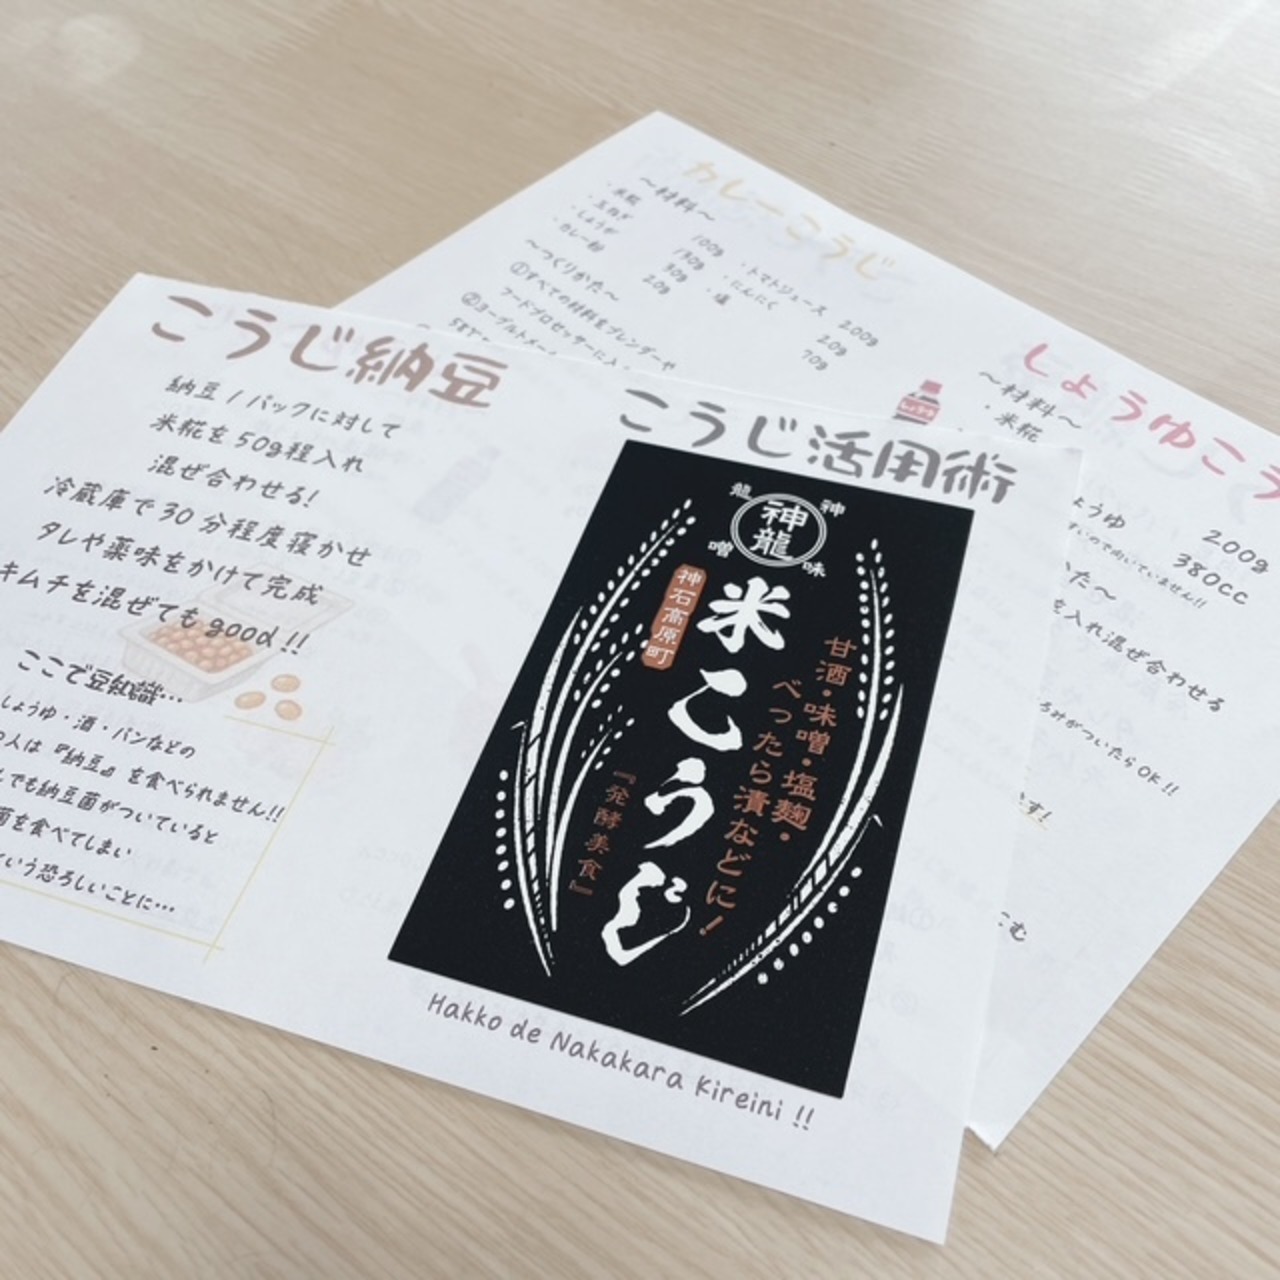 こうじ納豆
納豆1パックに対して
米糀を50g程入れ
混ぜ合わせる!
冷蔵庫で30分程度寝かせ
タレや薬味をかけて完成
キムチを混ぜてもgood!!
ここで豆知識…
しょうゆ・酒・パンなどの
人は『納豆』を食べられません!!
でも納豆菌がついていると
菌を食べてしまい
という恐ろしいことに…
こうじ活用術
龍神
神龍
噌味
神石高原町
米こうじ
甘酒・味噌・塩麹・
べったら漬などに!
『発酵美食』
Hakko de Nakakara Kireini !!
カレーこうじ
〜材料〜
・米糀 100g
・玉ねぎ 130g
・しょうが 30g
・カレー粉 20g
・トマトジュース 200g
・にんにく 20g
・塩 70g
〜つくりかた〜
①すべての材料をブレンダーや
フードプロセッサーに入
②ヨーグルトメー
しょうゆこう
しょうゆ
〜材料〜
・米糀 200g
ょうゆ 380cc
ので向いていません!!
た〜
を入れ混ぜ合わせる
ろみがついたらOK!!
す!
こむ